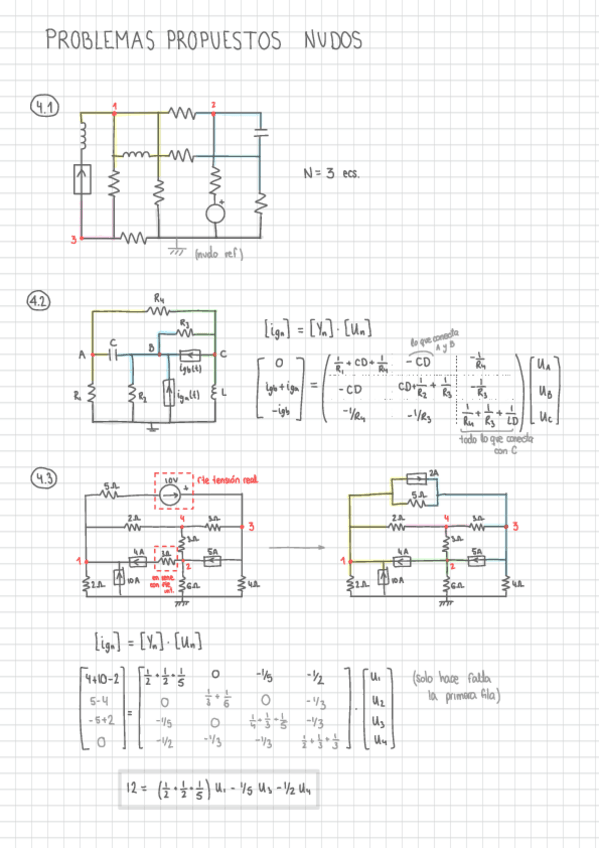 PROBLEMAS PROPUESTOS NUDOS
4.1
1
2
3
N = 3 ecs.
(nudo ref)
4.2
R4
R3
A
C
B
C
igb(t)
R1
R2
iga(t)
L
[ign] = [Yn] · [Un]
lo que conecta
A y B
0
igb + iga
-igb
=
1/R1 + CD + 1/R4
-CD
-1/R4
-CD
CD + 1/R2 + 1/R3
-1/R3
-1/R4
-1/R3
1/R4 + 1/R3 + 1/LD
UA
UB
UC
todo lo que conecta
con C
4.3
5Ω
10V
+
fte tensión real
2Ω
4
3Ω
3
3Ω
1
4A
3Ω
5A
2
2Ω
10A
en serie
con fte
int.
6Ω
4Ω
2A
5Ω
2Ω
4
3Ω
3
3Ω
1
4A
5A
2
2Ω
10A
6Ω
4Ω
[ign] = [Yn] · [Un]
4+10-2
5-4
-5+2
0
=
1/2 + 1/2 + 1/5
0
-1/5
-1/2
0
1/3 + 1/6
0
-1/3
-1/5
0
1/4 + 1/3 + 1/5
-1/3
-1/2
-1/3
-1/3
1/2 + 1/3 + 1/3
·
U1
U2
U3
U4
(solo hace falta
la primera fila)
12 = (1/2 + 1/2 + 1/5) U1 - 1/5 U3 - 1/2 U4